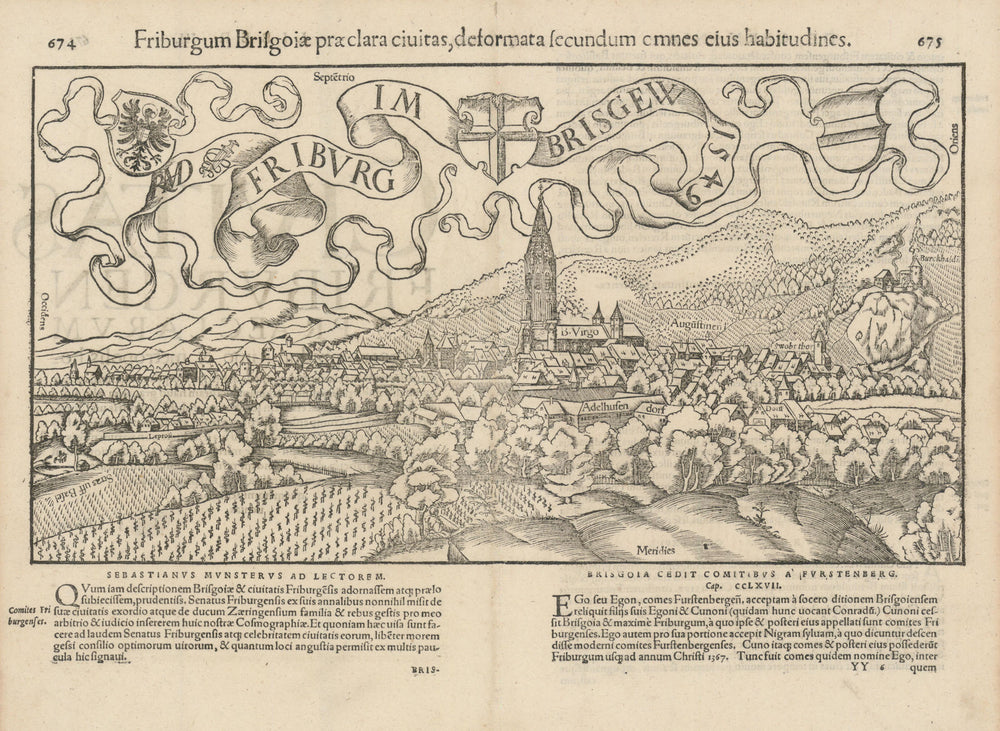 674 Friburgum Brisgoiæ præclara ciuitas, deformata secundum omnes eius habitudines. 675
Septētrio
IM
BRISGEW
1549
FRIBVRG
Oriens
Occidens
Burckhald
B. Virgo
Augustineri
Adelhusen dorf
Lepros
Meridies
SEBASTIANVS MVNSTERVS AD LECTOREM.
QVum iam descriptionem Brisgoiæ & ciuitatis Friburgēsis adornassem atq; prælo
subiecissem, prudentiss. Senatus Friburgensis ex suis annalibus nonnihil misit de
Comites Fri
burgenses.
suæ ciuitatis exordio atque de ducum Zæringensium familia & rebus gestis pro meo
arbitrio & iudicio insererem huic nostræ Cosmographiæ. Et quoniam hæc uisa sunt fa-
cere ad laudem Senatus Friburgensis atq; celebritatem ciuitatis eorum, libēter morem
gessi consilio optimorum uirorum, & quantum loci angustia permisit ex multis pau-
cula hic signaui.
BRIS-
BRISGOIA CEDIT COMITIBVS A' FVRSTENBERG.
Cap. CCLXVII.
EGo seu Egon, comes Furstenbergen̄, acceptam à socero ditionem Brisgoiensem
reliquit filijs suis Egoni & Cunoni (quidam hunc uocant Conradū.) Cunoni ces-
sit Brisgoia & maximè Friburgum, à quo ipse & posteri eius appellati sunt comites Fri
burgenses. Ego autem pro sua portione accepit Nigram syluam, à quo dicuntur descen
disse moderni comites Furstenbergenses. Cuno itaq; comes & posteri eius possederūt
Friburgum usq; ad annum Christi 1367. Tunc fuit comes quidem nomine Ego, inter
YY 6 quem